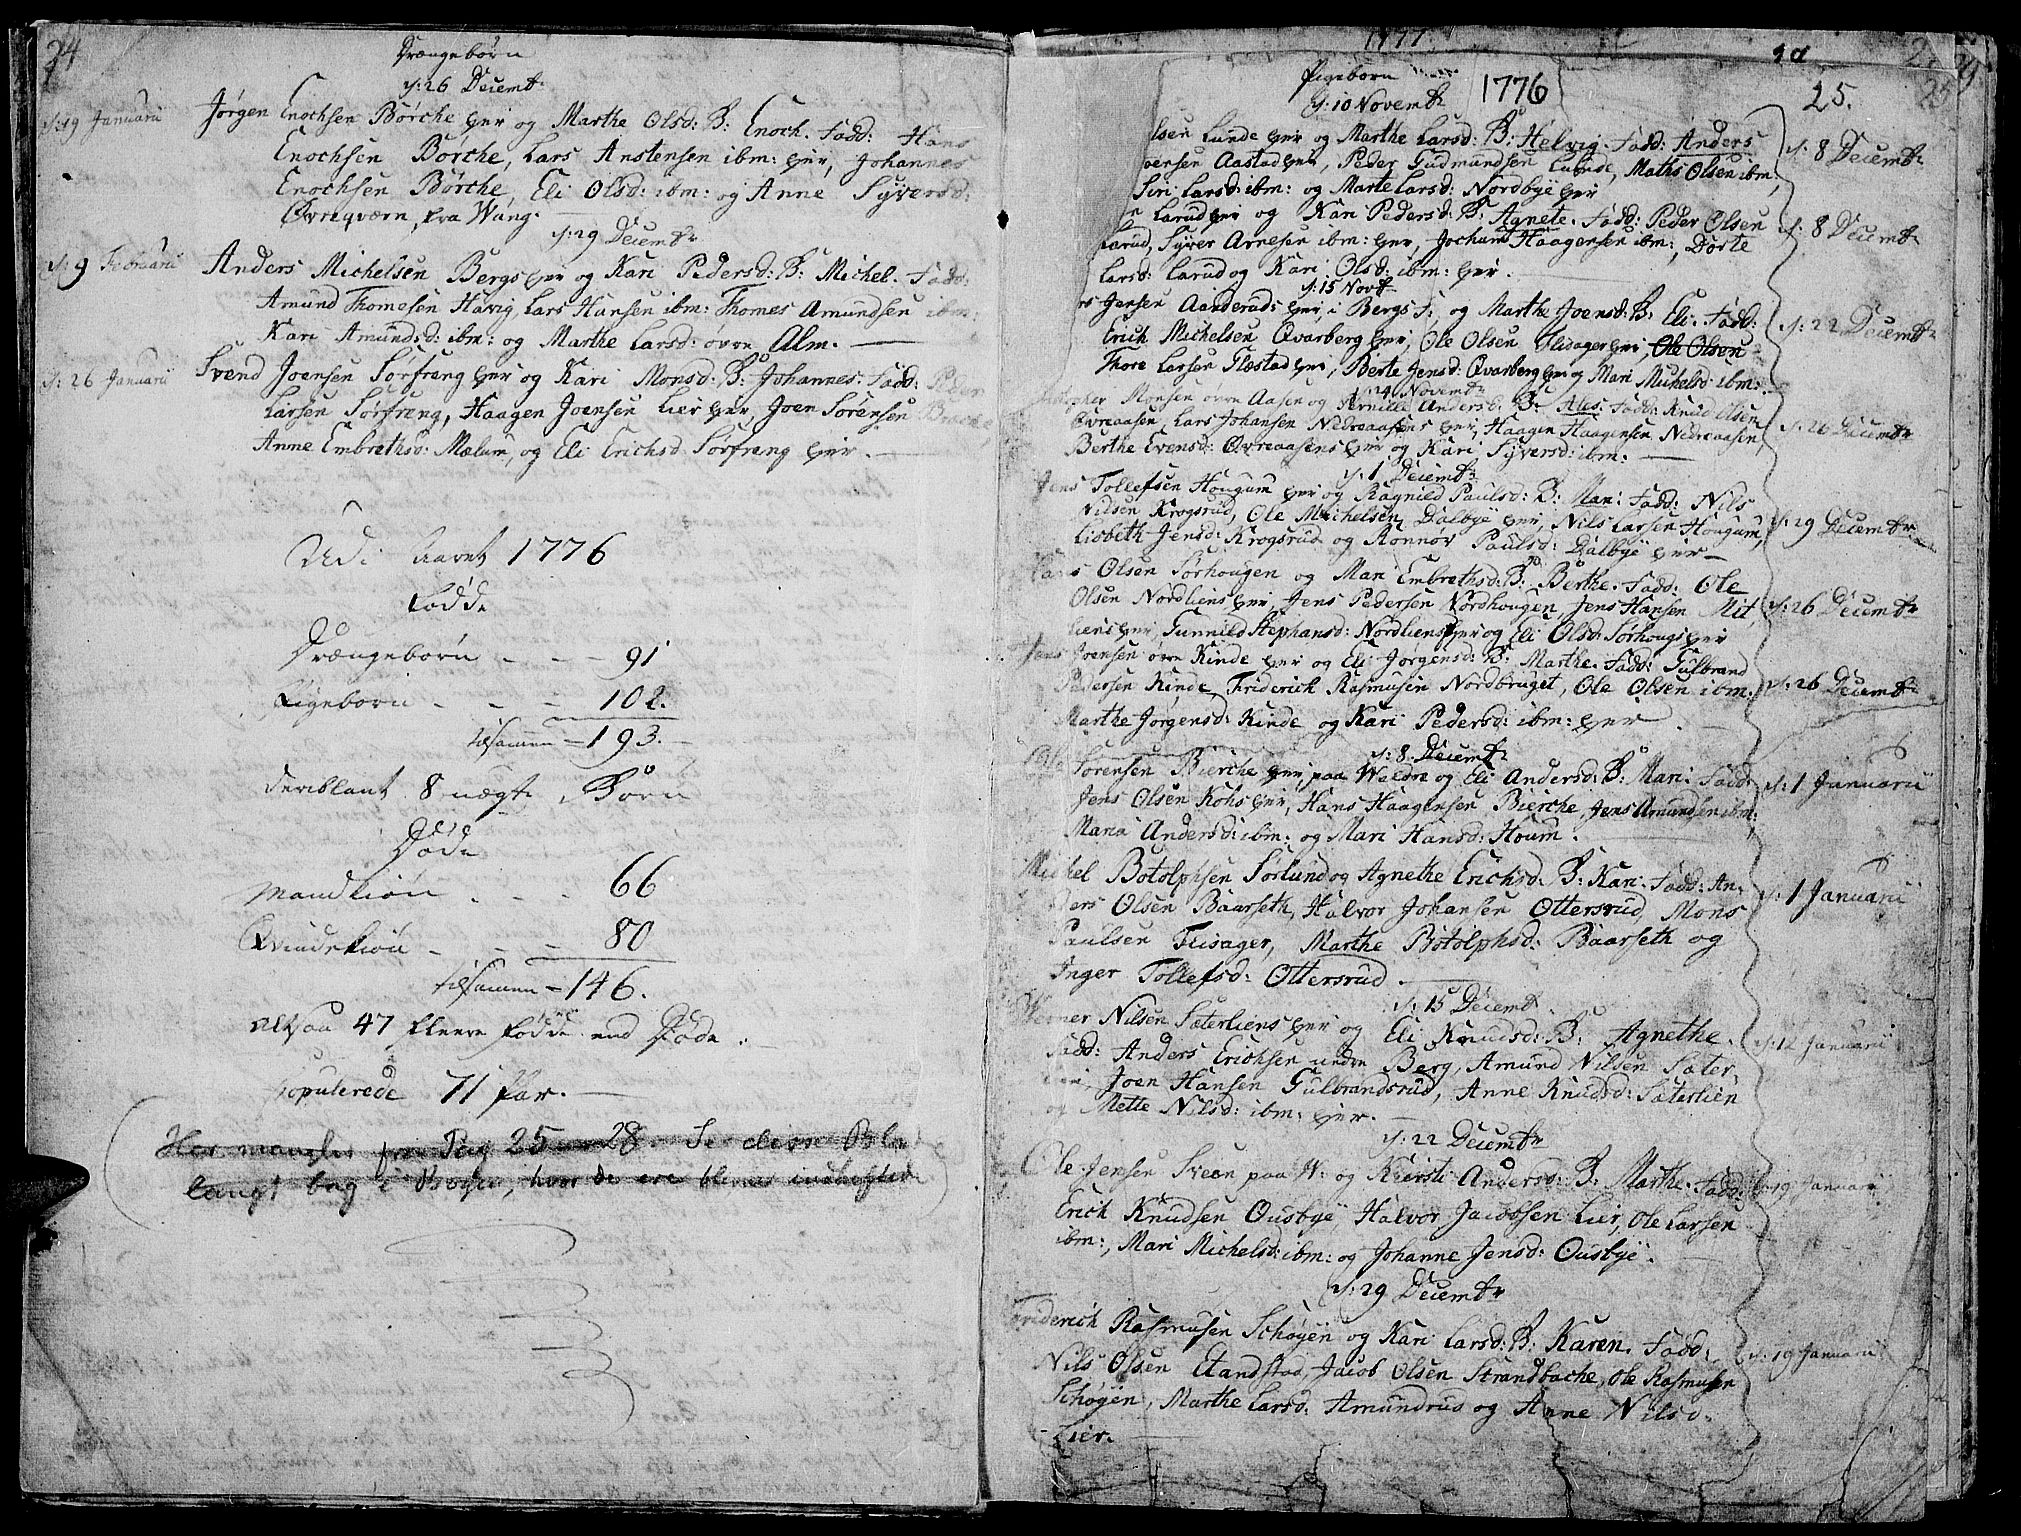 24
Drængebørn
d: 26 Decembr
d: 19 Januarii
Jørgen Enochsen Børche eier og Marthe Olsd: B: Enoch. Fadd: Hans
Enochsen Børche, Lars Anstensen ibm: eier, Johannes
Enochsen Børche, Eli Olsd: ibm: og Anne Syversd:
Øvreqværn, fra Wang.
d: 29 Decembr
d: 9 Februarii
Anders Michelsen Bergs eier og Kari Pedersd: B: Michel. Fadd:
Amund Thomesen Havig, Lars Hansen ibm: Thomes Amundsen ibm:
Kari Amundsd: ibm: og Marthe Larsd: øvre Alm.
d: 26 Januarii
Svend Joensen Sørfreng eier og Kari Monsd: B: Johannes. Fadd: Peder
Larsen Sørfreng, Haagen Joensen Lier eier, Joen Sørensen
Anne Embrethsd: Mælum, og Eli Erichsd Sørfreng eier.
Udi Aaret 1776
Fødde
Drængebørn - - - 91
Pigebørn - - - 102.
tilsammen - 193.
deriblant 8 uægte Børn
Døde
Mandkiøn - - - 66
Qvindekiøn - - - 80
tilsammen - 146.
Altsaa 47 fleere fødde end Døde.
Copulerede 71 Par.
Her mangler fra Pag 25 - 28. Se disse Bla
langt bag i Bogen, hvor de ere blevne indheftede
1777.
Pigebørn
1776
25.
d: 10 Novembr
lsen Lunde eier og Marthe Larsd: B: Helvig. Fadd: Anders
oensen Aastad eier, Peder Gudmundsen Lunde, Maths Olsen ibm,
Siri Larsd: ibm: og Marte Larsd: Nordbye eier
d: 8 Decembr
Larud eier og Kari Pedersd: B: Agnete. Fadd: Peder Olsen
Larud, Syver Arnesen ibm: eier, Jochum Haagensen ibm:, Dorte
Larsd: Larud og Kari Olsd: ibm: eier.
d: 8 Decembr
d: 15 Novbr
rs Jensen Aanderuds eier i Bergs F: og Marthe Joensd: B: Eli. Fadd:
Erich Michelsen Qvarberg eier, Ole Olsen Flisager eier, Ole Olsen
Thore Larsen Flæstad eier, Berte Jensd: Qvarberg eier og Mari Michelsd: ibm:
d: 22 Decembr
d: 24 Novembr
Monsen øvre Aasen og Pernille Andersd: B: Ales. Fadd: Knud Olsen
Øvreaasen, Lars Johansen Nedreaasens eier, Haagen Haagensen Nedreaasen,
Berthe Evensd: Øvreaasens eier og Kari Syversd: ibm:
d: 26 Decembr
d: 1 Decembr
Jens Tollefsen Hougum eier og Ragnild Paulsd: B: Mari. Fadd: Nils
Nilsen Krogsrud, Ole Michelsen Dalbye eier, Nils Larsen Hougum,
Lisbeth Jensd: Krogsrud og Ronnov Paulsd: Dalbye eier
d: 29 Decembr
Hans Olsen Sørhougen og Mari Embrethsd: B: Berthe. Fadd: Ole
Olsen Nordliens eier, Jens Pedersen Nordhougen, Jens Hansen Mit,
liens eier, Gunnild Stephansd: Nordliens eier og Eli Olsd: Sørhougs eier
d: 26 Decembr
Joensen øvre Kinde eier og Eli Jørgensd: B: Marthe. Fadd: Gulbrand
Pedersen Kinde, Friderich Rasmusen Nordbruget, Ole Olsen ibm.
Marthe Jørgensd: Kinde og Kari Pedersd: ibm: eier
d: 26 Decembr
d: 8 Decembr
Ole Sørensen Bierche eier, paa Weldre og Eli Andersd: B: Mari. Fadd:
Jens Olsen Kohs eier, Hans Haagensen Bierche, Jens Amundsen ibm:
Maria Andersd: ibm: og Mari Hansd: Houm.
d: 1 Januarii
Michel Botolphsen Sørlund og Agnethe Erichsd: B: Kari. Fadd: An-
ders Olsen Baarseth, Halvor Johansen Ottersrud, Mons
Paulsen Flisager, Marthe Botolphsd: Baarseth og
Inger Tollefsd: Ottersrud.
d: 1 Januarii
d: 15 Decembr
Werner Nilsen Sæterliens eier og Eli Knudsd: B: Agnethe.
Fadd: Anders Erichsen nedre Berg, Amund Nilsen Sæter
lien, Joen Hansen Gulbrandsrud, Anne Knudsd: Sæterlien
og Mette Nilsd: ibm: eier.
d: 12 Januarii
d: 22 Decembr
Ole Jensen Sveen paa W: og Kiersti Andersd: B: Marthe. Fadd:
Erich Knudsen Ousbye, Halvor Jacobsen Lier, Ole Larsen
ibm:, Mari Michelsd: ibm: og Johanne Jensd: Ousbye.
d: 19 Januarii
d: 29 Decembr
Friderich Rasmusen Schøyen og Kari Larsd: B: Karen. Fadd:
Nils Olsen Standstad, Jacob Olsen Strandbache, Ole Rasmusen
Schøyen, Marthe Larsd: Amundrus og Anne Nilsd:
Lier.
d: 19 Januarii